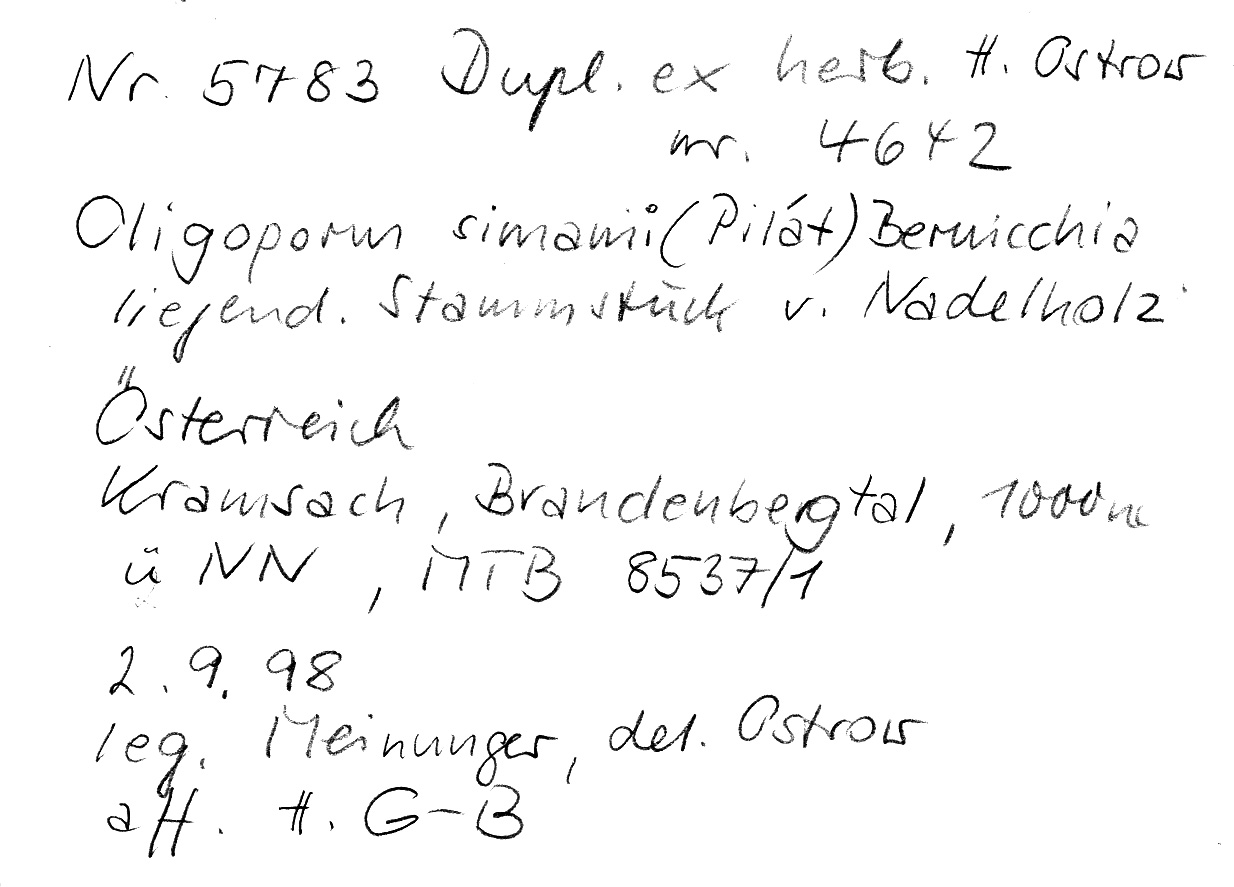 Nr. 5783 Dupl. ex herb. H. Ostrow
nr. 4642
Oligoporus simanii (Pilát) Bernicchia
liegend. Stammstück v. Nadelholz
Österreich
Kramsach, Brandenbergtal, 1000 m
ü NN, MTB 8537/1
2. 9. 98
leg. Meinunger, det. Ostrow
aH. H. G-B